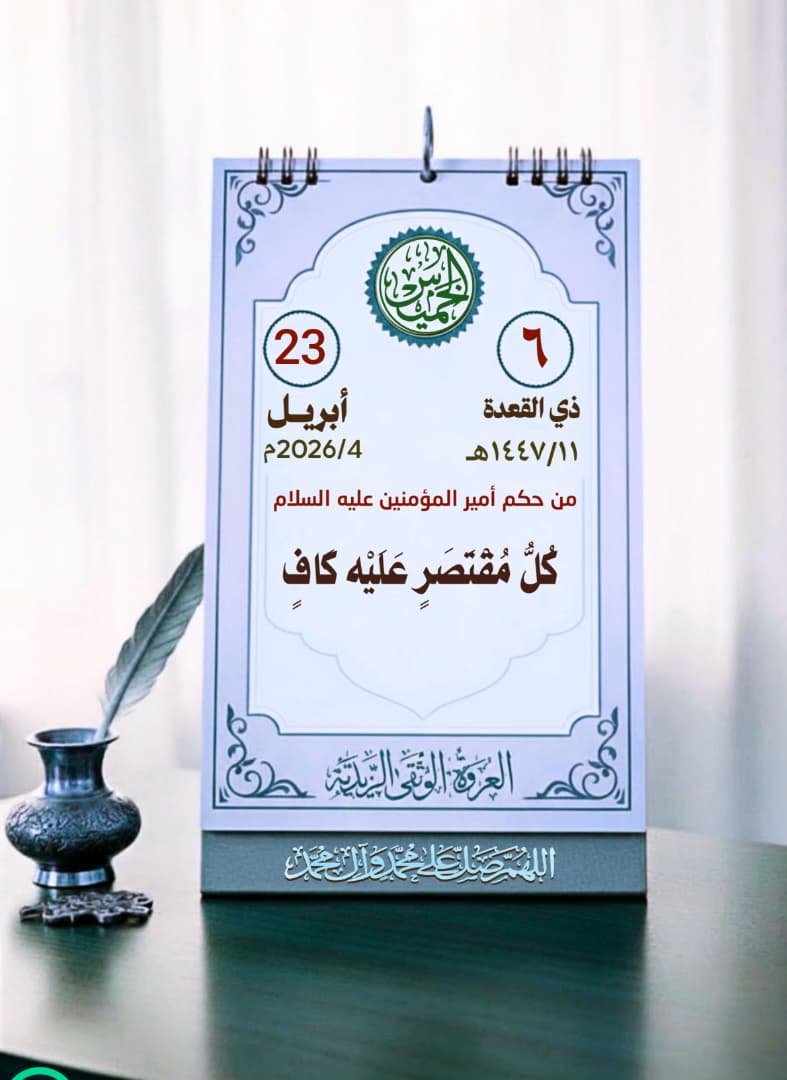 الخميس
٦
23
ذي القعدة
أبريـل
١٤٤٧/١١هـ
2026/4م
من حكم أمير المؤمنين عليه السلام
كُلُّ مُقْتَصَرٍ عَلَيْه كافٍ
العروة الوثقى الزيدية
اللهم صل على محمد وآل محمد